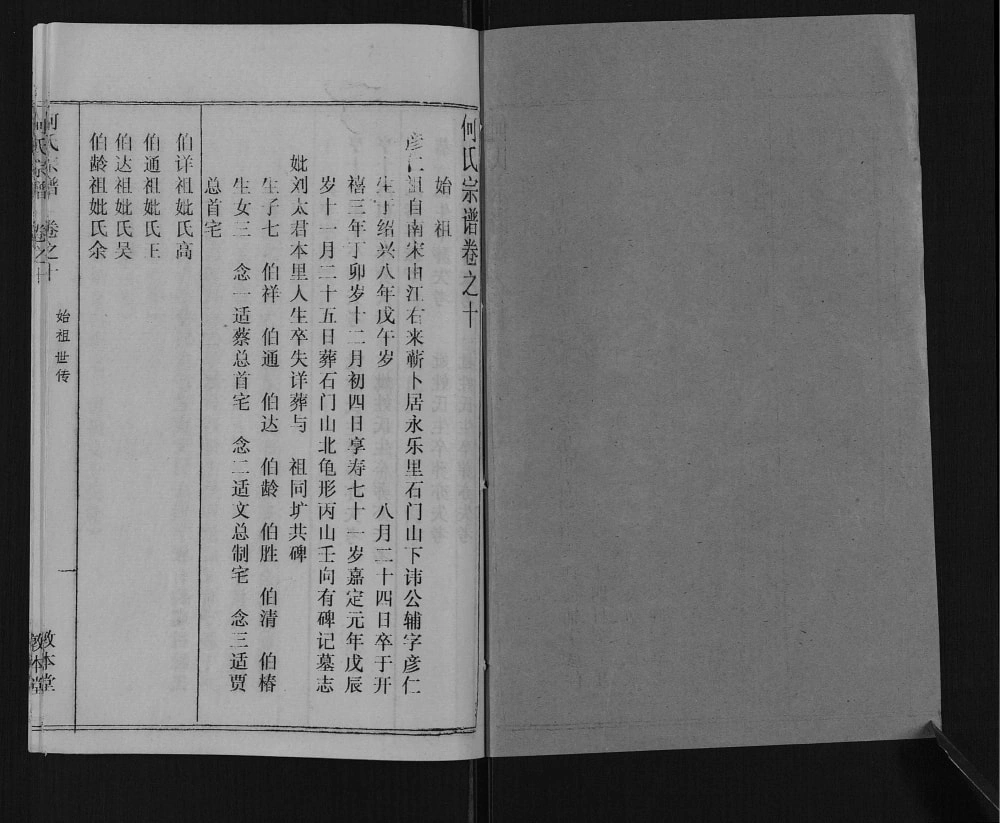 何氏宗谱卷之十
始祖
彦仁祖自南宋由江右来蕲卜居永乐里石门山下讳公辅字彦仁
生于绍兴八年戊午岁 八月二十四日卒于开
禧三年丁卯岁十二月初四日享寿七十一岁嘉定元年戊辰
岁十一月二十五日葬石门山北龟形丙山壬向有碑记墓志
妣刘太君本里人生卒失详葬与 祖同圹共碑
生子七 伯祥 伯通 伯达 伯龄 伯胜 伯清 伯椿
生女三 念一适蔡总首宅 念二适文总制宅 念三适贾
总首宅
伯详祖妣氏高
伯通祖妣氏王
伯达祖妣氏吴
伯龄祖妣氏余
何氏宗谱 卷之十 始祖世传 一 敦本堂